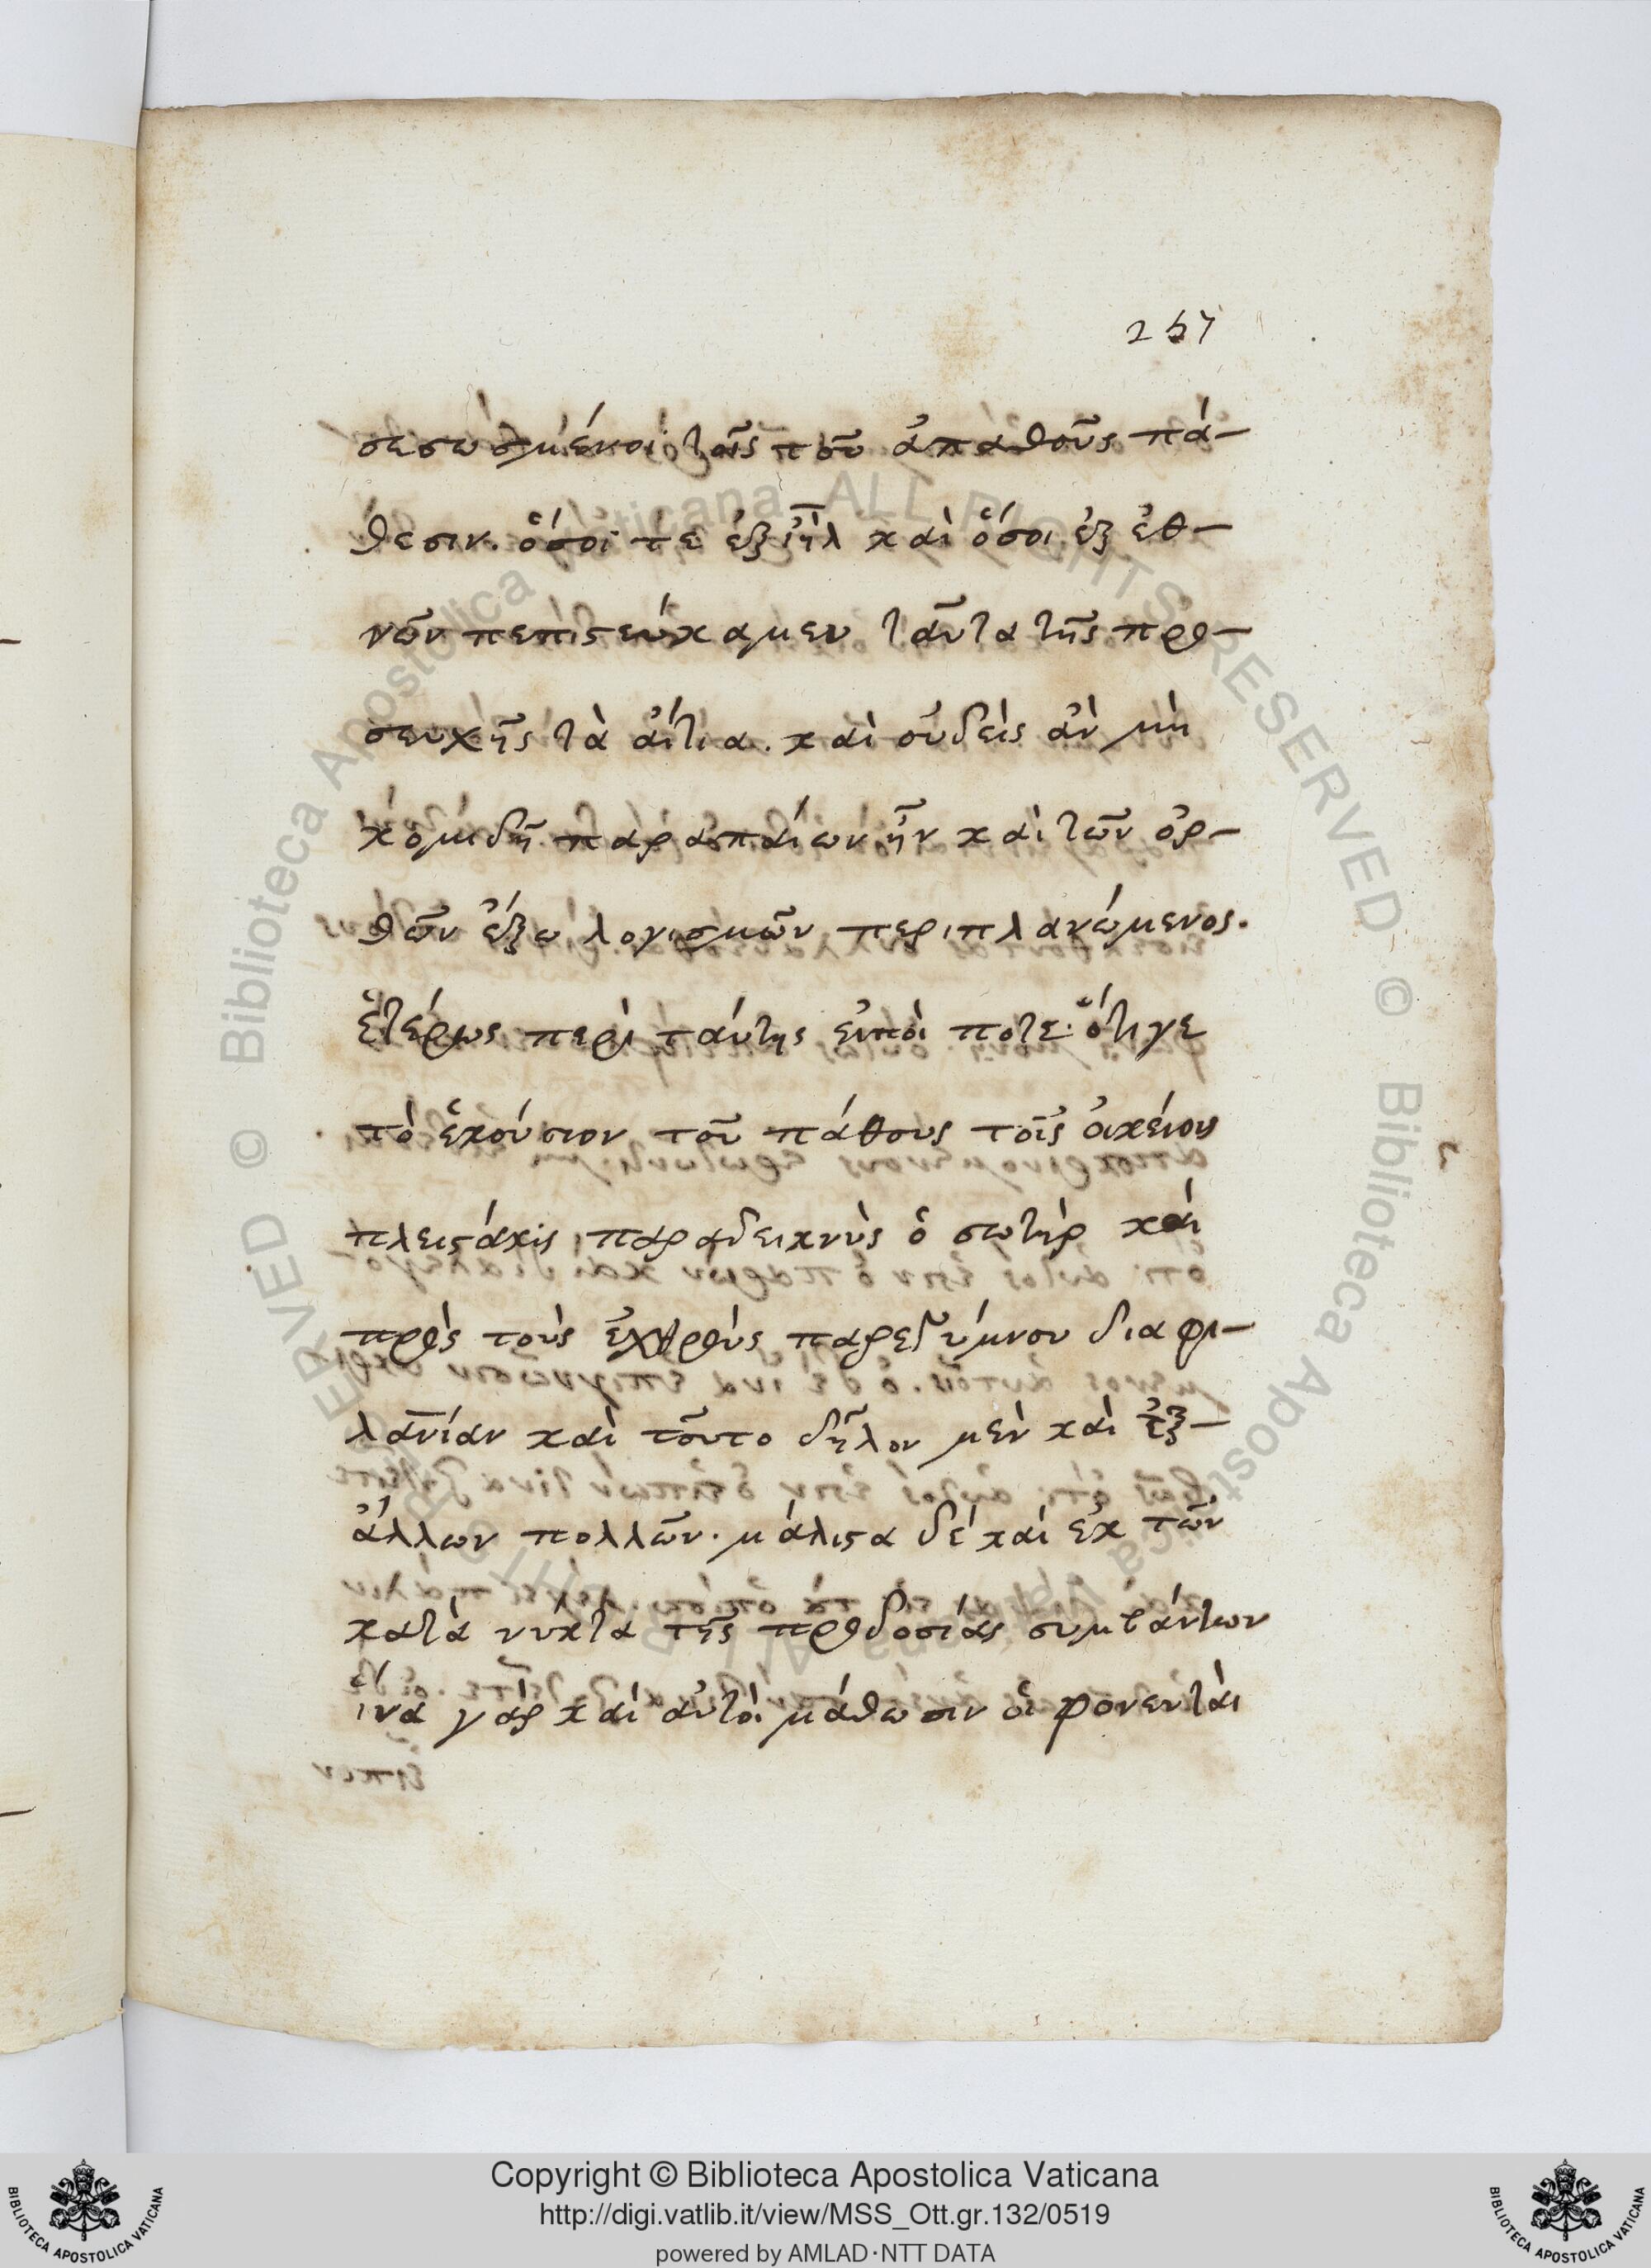 257
σεσωσμένοι τοῖς τοῦ ἀπαθοῦς πά-
θεσιν. ὅσοι τε ἐξ ἰη̅λ καὶ ὅσοι ἐξ ἐθ-
νῶν πεπιστεύκαμεν ταῦτα τῆς προ-
σευχῆς τὰ αἴτια. καὶ οὐδεὶς ἂν μὴ
κομιδῆ παραπαίων ἦν καὶ τῶν ὀρ-
θῶν ἔξω λογισμῶν περιπλανώμενος.
ἑτέρως περὶ ταύτης εἴποι ποτε· ὅτι γε
τὸ ἑκούσιον τοῦ πάθους τοῖς οἰκείοις
πλειστάκις παραδεικνὺς ὁ σωτὴρ καὶ
πρὸς τοὺς ἐχθροὺς παρεγύμνου δια φι-
λανίαν καὶ τοῦτο δῆλον μὲν καὶ ἐξ-
ἄλλων πολλῶν. μάλιστα δὲ καὶ ἐκ τῶν
κατὰ νύκτα τῆς προδοσίας συμβάντων
ἵνα γὰρ καὶ αὐτοὶ μάθωσιν οἱ φονευταὶ
Copyright © Biblioteca Apostolica Vaticana
http://digi.vatlib.it/view/MSS_Ott.gr.132/0519
powered by AMLAD·NTT DATA
BIBLIOTECA APOSTOLICA VATICANA
BIBLIOTECA APOSTOLICA VATICANA